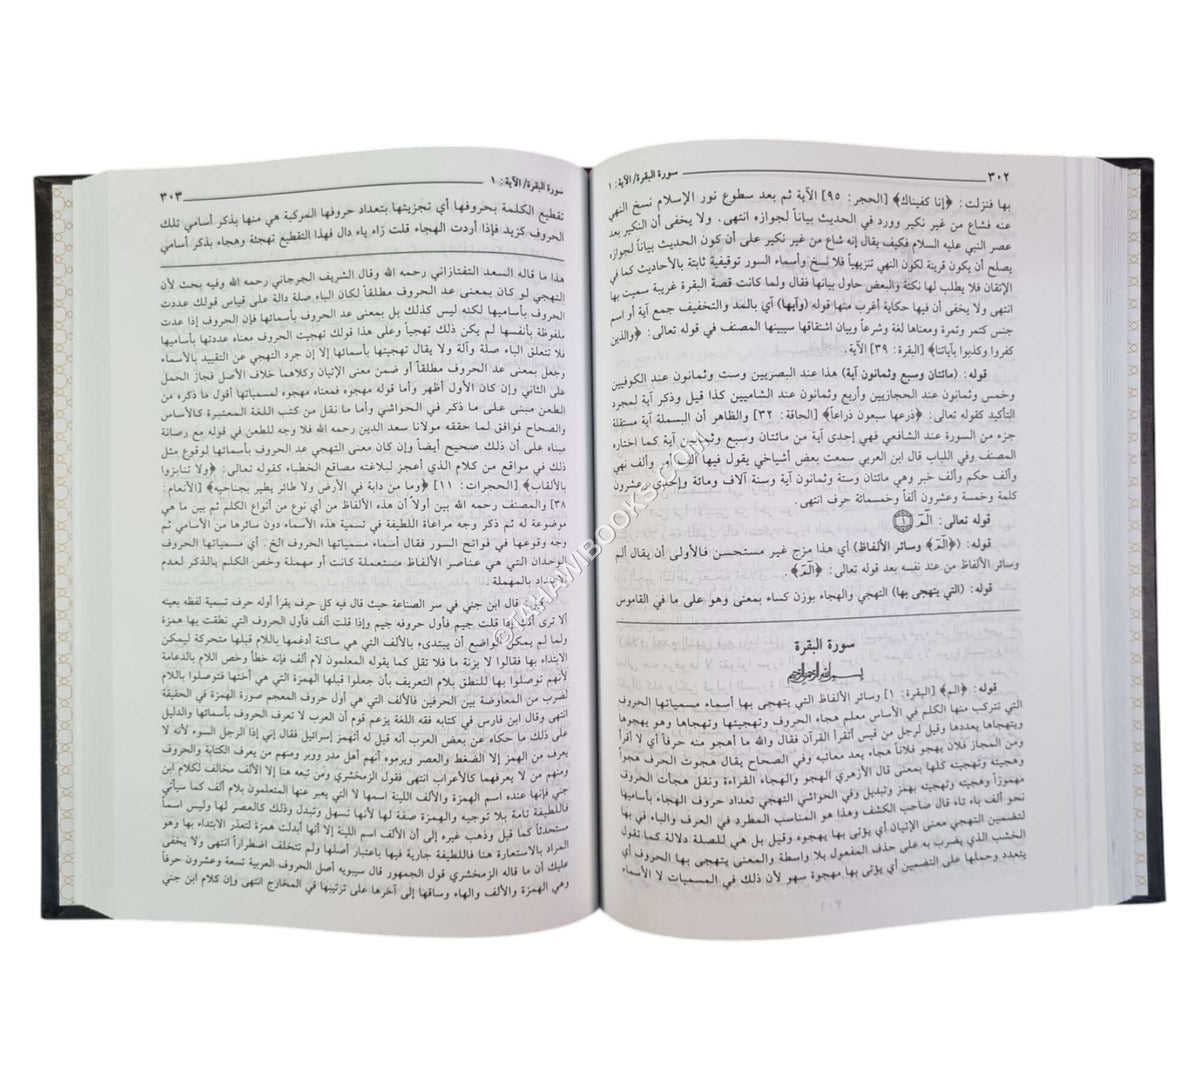 ٣٠٢ سورة البقرة/ الآية: ١
بها فنزلت: ﴿إنا كفيناك﴾ [الحجر: ٩٥] الآية ثم بعد سطوع نور الإسلام نسخ النهي
عنه فشاع من غير نكير وورد في الحديث بياناً لجوازه انتهى. ولا يخفى أن النكير بعد
عصر النبي عليه السلام فكيف يقال إنه شاع من غير نكير على أن كون الحديث بياناً لجوازه
يصلح أن يكون قرينة لكون النهي تنزيهياً فلا نسخ وأسماء السور توقيفية ثابتة بالأحاديث كما في
الإتقان فلا يطلب لها نكتة والبعض حاول بيانها فقال ولما كانت قصة البقرة غريبة سميت بها
انتهى ولا يخفى أن فيها حكاية أغرب منها قوله (وآيها) أي بالمد والتخفيف جمع آية أو اسم
جنس كتمر وتمرة ومعناها لغة وشرعاً وبيان اشتقاقها سيبينها المصنف في قوله تعالى: ﴿والذين
كفروا وكذبوا بآياتنا﴾ [البقرة: ٣٩] الآية.
قوله: (مائتان وسبع وثمانون آية) هذا عند البصريين وست وثمانون عند الكوفيين
وخمس وثمانون عند الحجازيين وأربع وثمانون عند الشاميين كذا قيل وذكر آية لمجرد
التأكيد كقوله تعالى: ﴿ذرعها سبعون ذراعاً﴾ [الحاقة: ٣٢] والظاهر أن البسملة آية مستقلة
جزء من السورة عند الشافعي فهي إحدى آية من مائتان وسبع وثمانون آية كما اختاره
المصنف وفي اللباب قال ابن العربي سمعت بعض أشياخي يقول فيها ألف أمر وألف نهي
وألف حكم وألف خبر وهي مائتان وستة وثمانون آية وستة آلاف ومائة وإحدى وعشرون
كلمة وخمسة وعشرون ألفاً وخمسمائة حرف انتهى.
قوله تعالى: الٓمٓ ١
قوله: (﴿الٓمٓ﴾ وسائر الألفاظ) أي هذا مزج غير مستحسن فالأولى أن يقال ألم
وسائر الألفاظ من عند نفسه بعد قوله تعالى: ﴿الٓمٓ﴾.
قوله: (التي يتهجى بها) التهجي والهجاء بوزن كساء بمعنى وهو على ما في القاموس
سورة البقرة
بسم الله الرحمن الرحيم
قوله: ﴿الم﴾ [البقرة: ١] وسائر الألفاظ التي يتهجى بها أسماء مسمياتها الحروف
التي تتركب منها الكلم في الأساس معلم هجاء الحروف وتهجيتها وتهجاها وهو يهجوها
ويتهجاها يعددها وقيل لرجل من قيس أتقرأ القرآن فقال والله ما أهجو منه حرفاً أي لا أقرأ
ومن المجاز فلان يهجو فلاناً هجاء يعد معائبه وفي الصحاح يقال هجوت الحرف هجواً
وهجيته وتهجيته كلها بمعنى قال الأزهري الهجو والهجاء القراءة ونقل هجأت الحروف
مهموزاً وهجيته وتهجيته بهمز وتبديل وفي الحواشي التهجي تعداد حروف الهجاء بأساميها
نحو ألف باء تاء قال صاحب الكشف وهذا هو المناسب المطرد في العرف والباء في بها
لتضمين التهجي معنى الإتيان أي يؤتى بها يهجوه وقيل بل هي للصلة دلالة كما تقول
الخشب الذي يضرب به على حذف المفعول بلا واسطة والمعنى يتهجى بها الحروف أي
يتعدد وحملها على التضمين أي يؤتى بها مهجوة سهو لأن ذلك في المسميات لا الأسماء
سورة البقرة/ الآية: ١ ٣٠٣
تقطيع الكلمة بحروفها أي تجزيتها بتعداد حروفها المركبة هي منها بذكر أسامي تلك
الحروف كزيد فإذا أردت الهجاء قلت زاء ياء دال فهذا التقطيع تهجئة وهجاء بذكر أسامي
هذا ما قاله السعد التفتازاني رحمه الله وقال الشريف الجرجاني رحمه الله وفيه بحث لأن
التهجي لو كان بمعنى عد الحروف مطلقاً لكان الباء صلة دالة على قياس قولك عددت
الحروف بأساميها لكنه ليس كذلك بل بمعنى عد الحروف بأسمائها فإن الحروف إذا عدت
ملفوظة بأنفسها لم يكن ذلك تهجياً وعلى هذا قولك تهجيت الحروف معناه عددتها بأساميها
فلا تتعلق الباء صلة وآلة ولا يقال تهجيتها بأسمائها إلا إن جرد التهجي عن التقييد بالأسماء
وجعل بمعنى عد الحروف مطلقاً أو ضمن معنى الإتيان وكلاهما خلاف الأصل فجاز الحمل
على الثاني وإن كان الأول أظهر وأما قوله مهجوه فمعناه مهجوه لمسمياتها أقول ما ذكره من
الطعن مبنى على ما ذكر في الحواشي وأما ما نقل من كتب اللغة المعتبرة كالأساس
والصحاح فوافق لما حققه مولانا سعد الدين رحمه الله فلا وجه للطعن في قوله مع رصانة
مبناه على أن ذلك صحيح أيضاً وإن كان معنى التهجي عد الحروف بأسمائها لوقوع مثل
ذلك في مواقع من كلام الذي أعجز لبلاغته مصاقع الخطباء كقوله تعالى: ﴿ولا تنابزوا
بالألقاب﴾ [الحجرات: ١١] ﴿وما من دابة في الأرض ولا طائر يطير بجناحيه﴾ [الأنعام:
٣٨] والمصنف رحمه الله بين أولاً أن هذه الألفاظ من أي نوع من أنواع الكلم ثم بين ما هي
موضوعة له ثم ذكر وجه مراعاة اللطيفة في تسمية هذه الأسماء دون سائرها من الأسامي ثم
وجه وقوعها في فواتح السور فقال أسماء مسمياتها الحروف الخ. أي مسمياتها الحروف
الوحدان التي هي عناصر الألفاظ مستعملة كانت أو مهملة وخص الكلم بالذكر لعدم
الاعتداد بالمهملة
قيل قال ابن جني في سر الصناعة حيث قال فيه كل حرف يقرأ أوله حرف تسمية لفظه بعينه
ألا ترى أنك إذا قلت جيم فأول حروفه جيم وإذا قلت ألف فأول الحروف التي نطقت بها همزة
ولما لم يمكن الواضع أن يبتدىء بالألف التي هي ساكنة أدغمها باللام قبلها متحركة ليمكن
الابتداء بها فقالوا لا بزنة ما فلا تقل كما يقوله المعلمون لام ألف فإنه خطأ وخص اللام بالدعامة
لأنهم توصلوا بها للنطق بلام التعريف بأن جعلوا قبلها الهمزة التي هي أختها فتوصلوا باللام
لضرب من المعاوضة بين الحرفين فالألف هي التي أول حروف المعجم صورة الهمزة في الحقيقة
انتهى وقال ابن فارس في كتابه فقه اللغة يزعم قوم أن العرب لا تعرف الحروف بأسمائها والدليل
على ذلك ما حكاه عن بعض العرب أنه قيل له أتهمز إسرائيل فقال إني إذا الرجل السوء لأنه لا
يعرف من الهمز إلا الضغط والعصر ويرموه أنهم أهل مدر ووبر ومنهم من يعرف الكتابة والحروف
ومنهم من لا يعرفهما كالأعراب انتهى فقول الزمخشري ومن تبعه هنا إلا الألف مخالف لكلام ابن
جني فإنها عنده اسم الهمزة والألف اللينة اسمها لا التي يعبر عنها المتعلمون بلام ألف كما سيأتي
فاللطيفة تامة بلا توجيه والهمزة صفة لها لأنها تسهل وتبدل وذلك كالعصر لها وليس اسماً
مستحدثاً كما قيل وذهب غيره إلى أن الألف اسم اللينة إلا أنها أبدلت همزة لتعذر الابتداء بها وهو
المراد بالاستعارة هنا فاللطيفة جارية فيها باعتبار أصلها ولم تتخلف اضطراراً انتهى ولا يخفى
عليك أن ما قاله الزمخشري قول الجمهور قال سيبويه أصل الحروف العربية تسعة وعشرون حرفاً
وهي الهمزة والألف والهاء وساقها إلى آخرها على ترتيبها في المخارج انتهى وإن كلام ابن جني
©TAHAWIBOOKS.COM